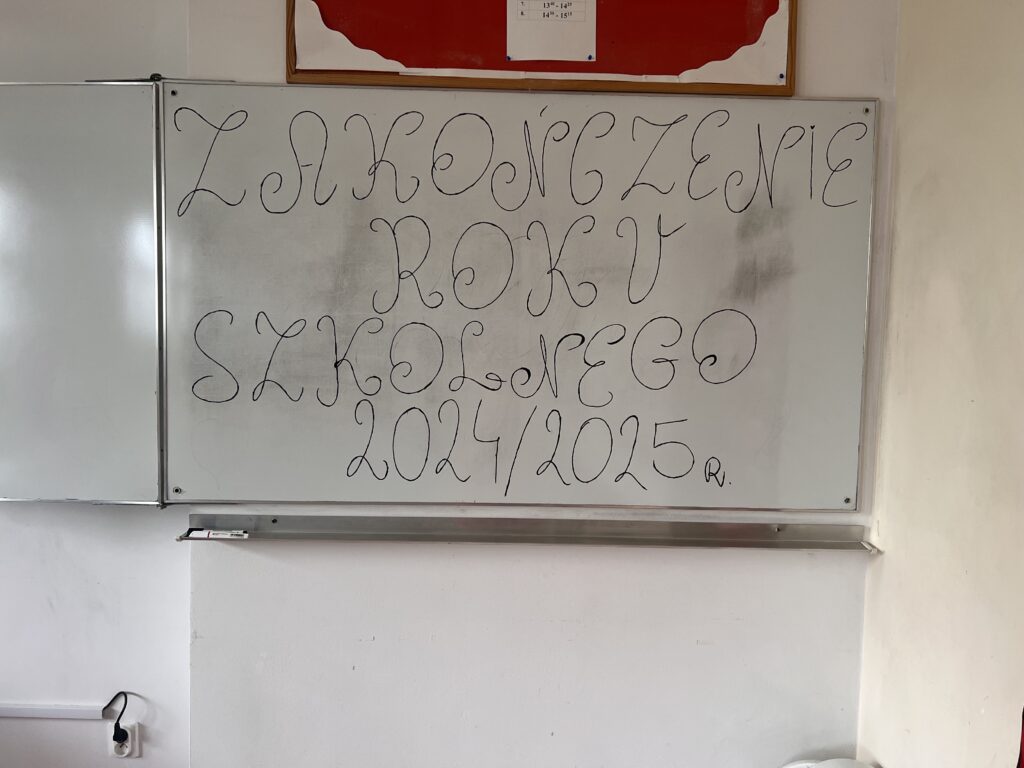 7. 13⁴⁰ - 14²⁵
8. 14³⁰ - 15¹⁵
ZAKOŃCZENIE
ROKU
SZKOLNEGO
2024/2025 R.